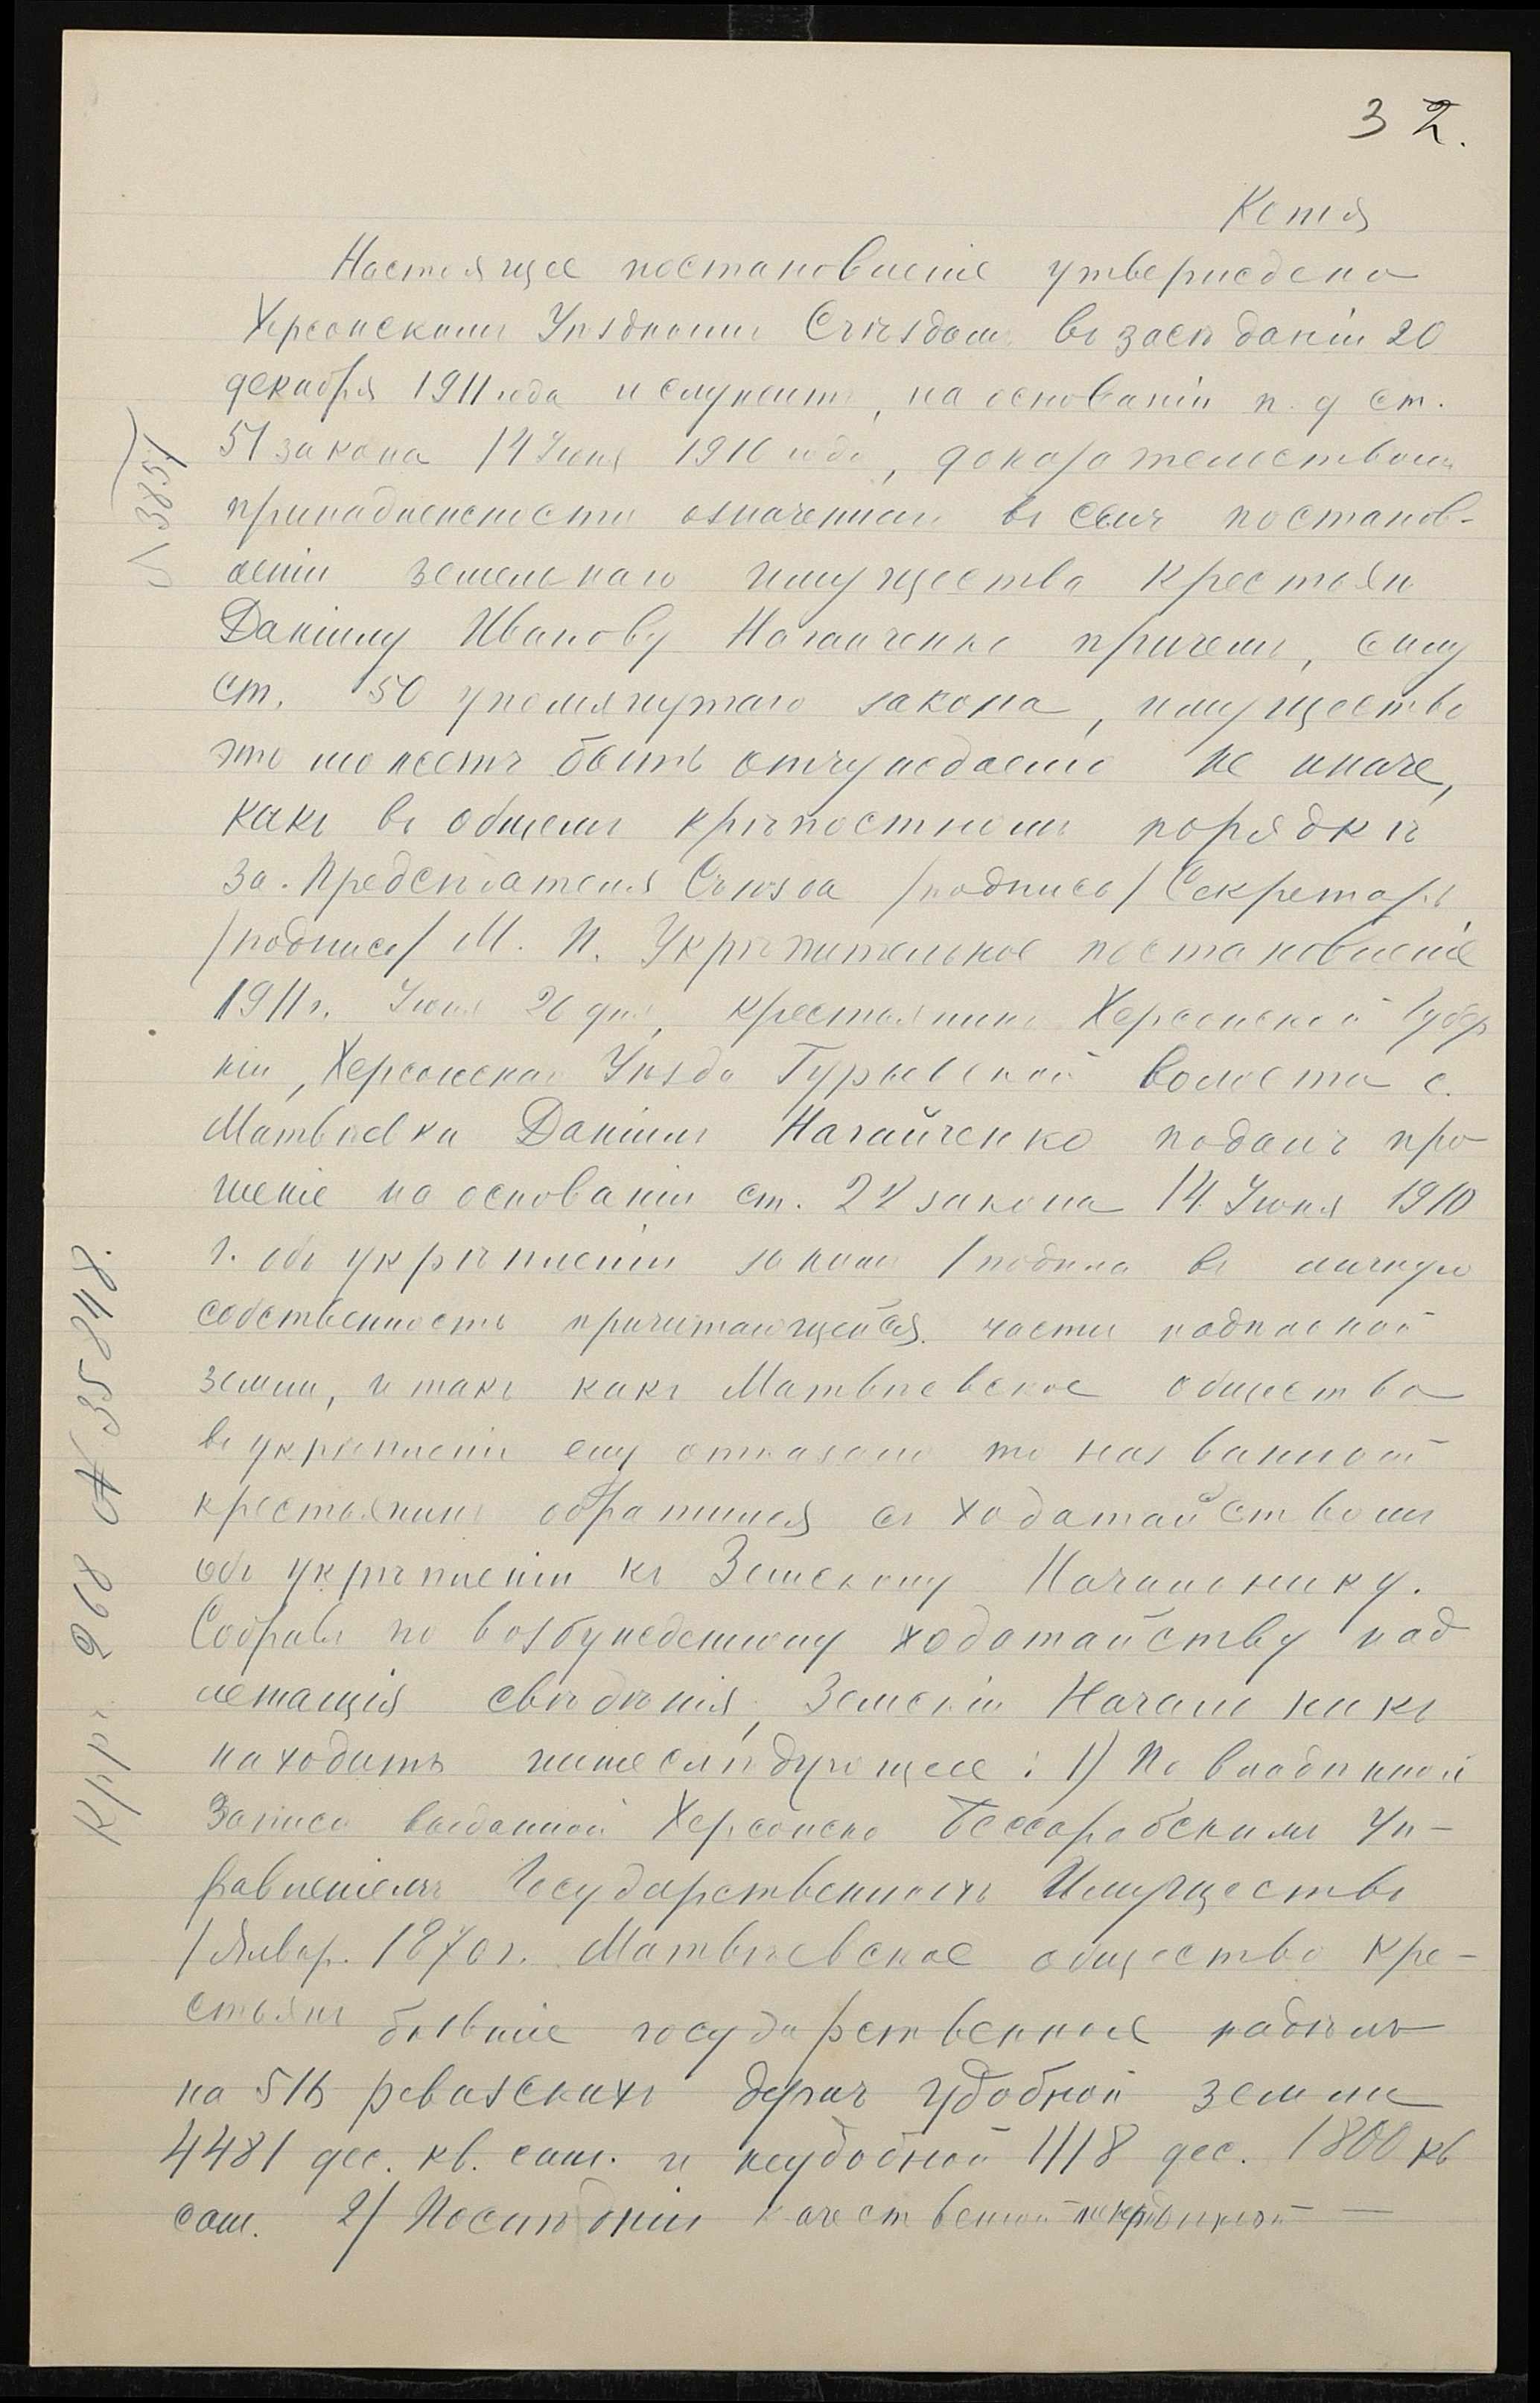 32.
Копія
Настоящее постановленіе утверждено
Херсонскимъ Уѣзднымъ Съѣздомъ въ засѣданіи 20
декабря 1911 года и служитъ, на основаніи п. д ст.
51 закона 14 Іюня 1910 года, доказательствомъ
принадлежности означеннаго въ семъ постанов-
леніи земельнаго имущества крестьян
Даніилу Иванову Нагайченко причемъ, силу
ст. 50 упомянутаго закона, имущество
это можетъ быть отчуждаемо не иначе,
какъ въ общемъ крѣпостномъ порядкѣ
За. Предсѣдателя Съѣзда /подпись/ Секретарь
/подпись/ М. П. Укрѣпительное постановленіе
1911 г. Іюня 26 дня, крестьянинъ Херсонской Губер
ніи, Херсонскаго Уѣзда Гурьевской волости с.
Матвѣевки Даніилъ Нагайченко подалъ про
шеніе на основаніи ст. 22 закона 14 Іюня 1910
г. объ укрѣпленіи за нимъ /подъла въ личную
собственность причитающейся части надѣльной
земли, и такъ какъ Матвѣевское общество
въ укрѣпленіи ему отказало то названной
крестьянинъ обратился съ ходатайствомъ
объ укрѣпленіи къ Земскому Начальнику.
Собравъ по возбужденному ходатайству над
лежащія свѣдѣнія, Земскій Начальникъ
находитъ нижеслѣдующее: 1) По владѣнной
записи выданной Херсонско Бессарабскимъ Уп-
равленіемъ Государственныхъ Имуществъ
1 Январ. 1870 г. Матвѣевское общество кре-
стьянъ бывшіе государственные надѣлъ
на 516 ревизскихъ душъ удобной земли
4481 дес. кв. саж. и неудобной 1118 дес. 1800 кв
саж. 2) Послѣдній качественной
№ 3851
Крр. 268 № 35848.